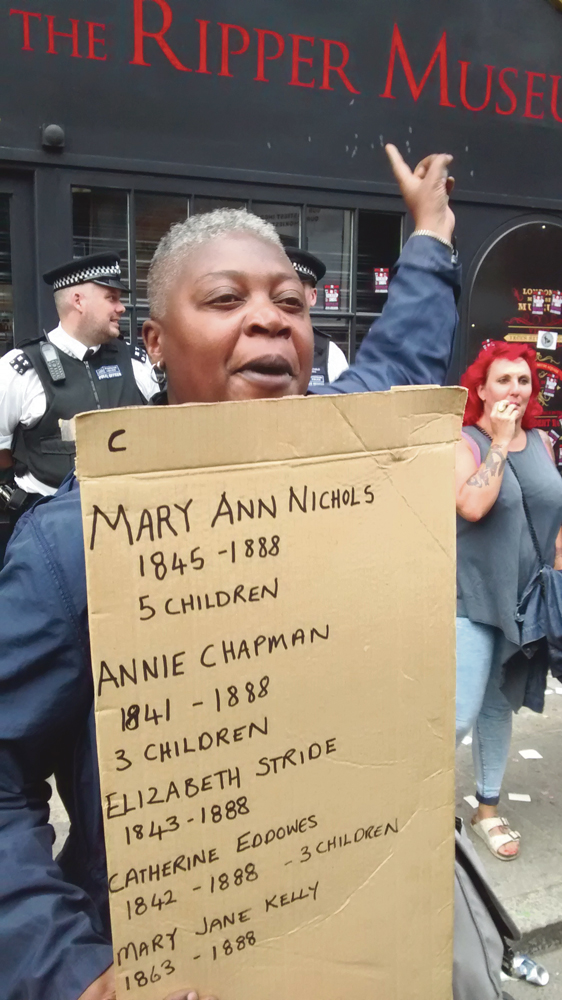 THE RIPPER MUSEU
C
MARY ANN NICHOLS
1845 - 1888
5 CHILDREN
ANNIE CHAPMAN
1841 - 1888
3 CHILDREN
ELIZABETH STRIDE
1843 - 1888
CATHERINE EDDOWES
1842 - 1888 - 3 CHILDREN
MARY JANE KELLY
1863 - 1888